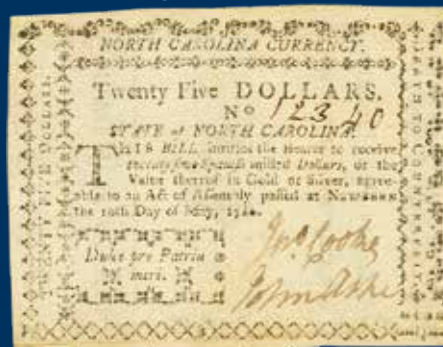 NORTH CAROLINA CURRENCY.
Twenty Five DOLLARS.
No 12340
STATE of NORTH CAROLINA.
THIS BILL entitles the Bearer to receive
twenty five Spanish milled Dollars, or the
Value thereof in Gold or Silver, agree-
able to an Act of Assembly passed at NEWBERN
the 10th Day of May, 1780.
Dulce pro Patria
mori.
Jno Cooke
John Ashe
TWENTY FIVE DOLLARS.
DEATH TO COUNTERFEIT